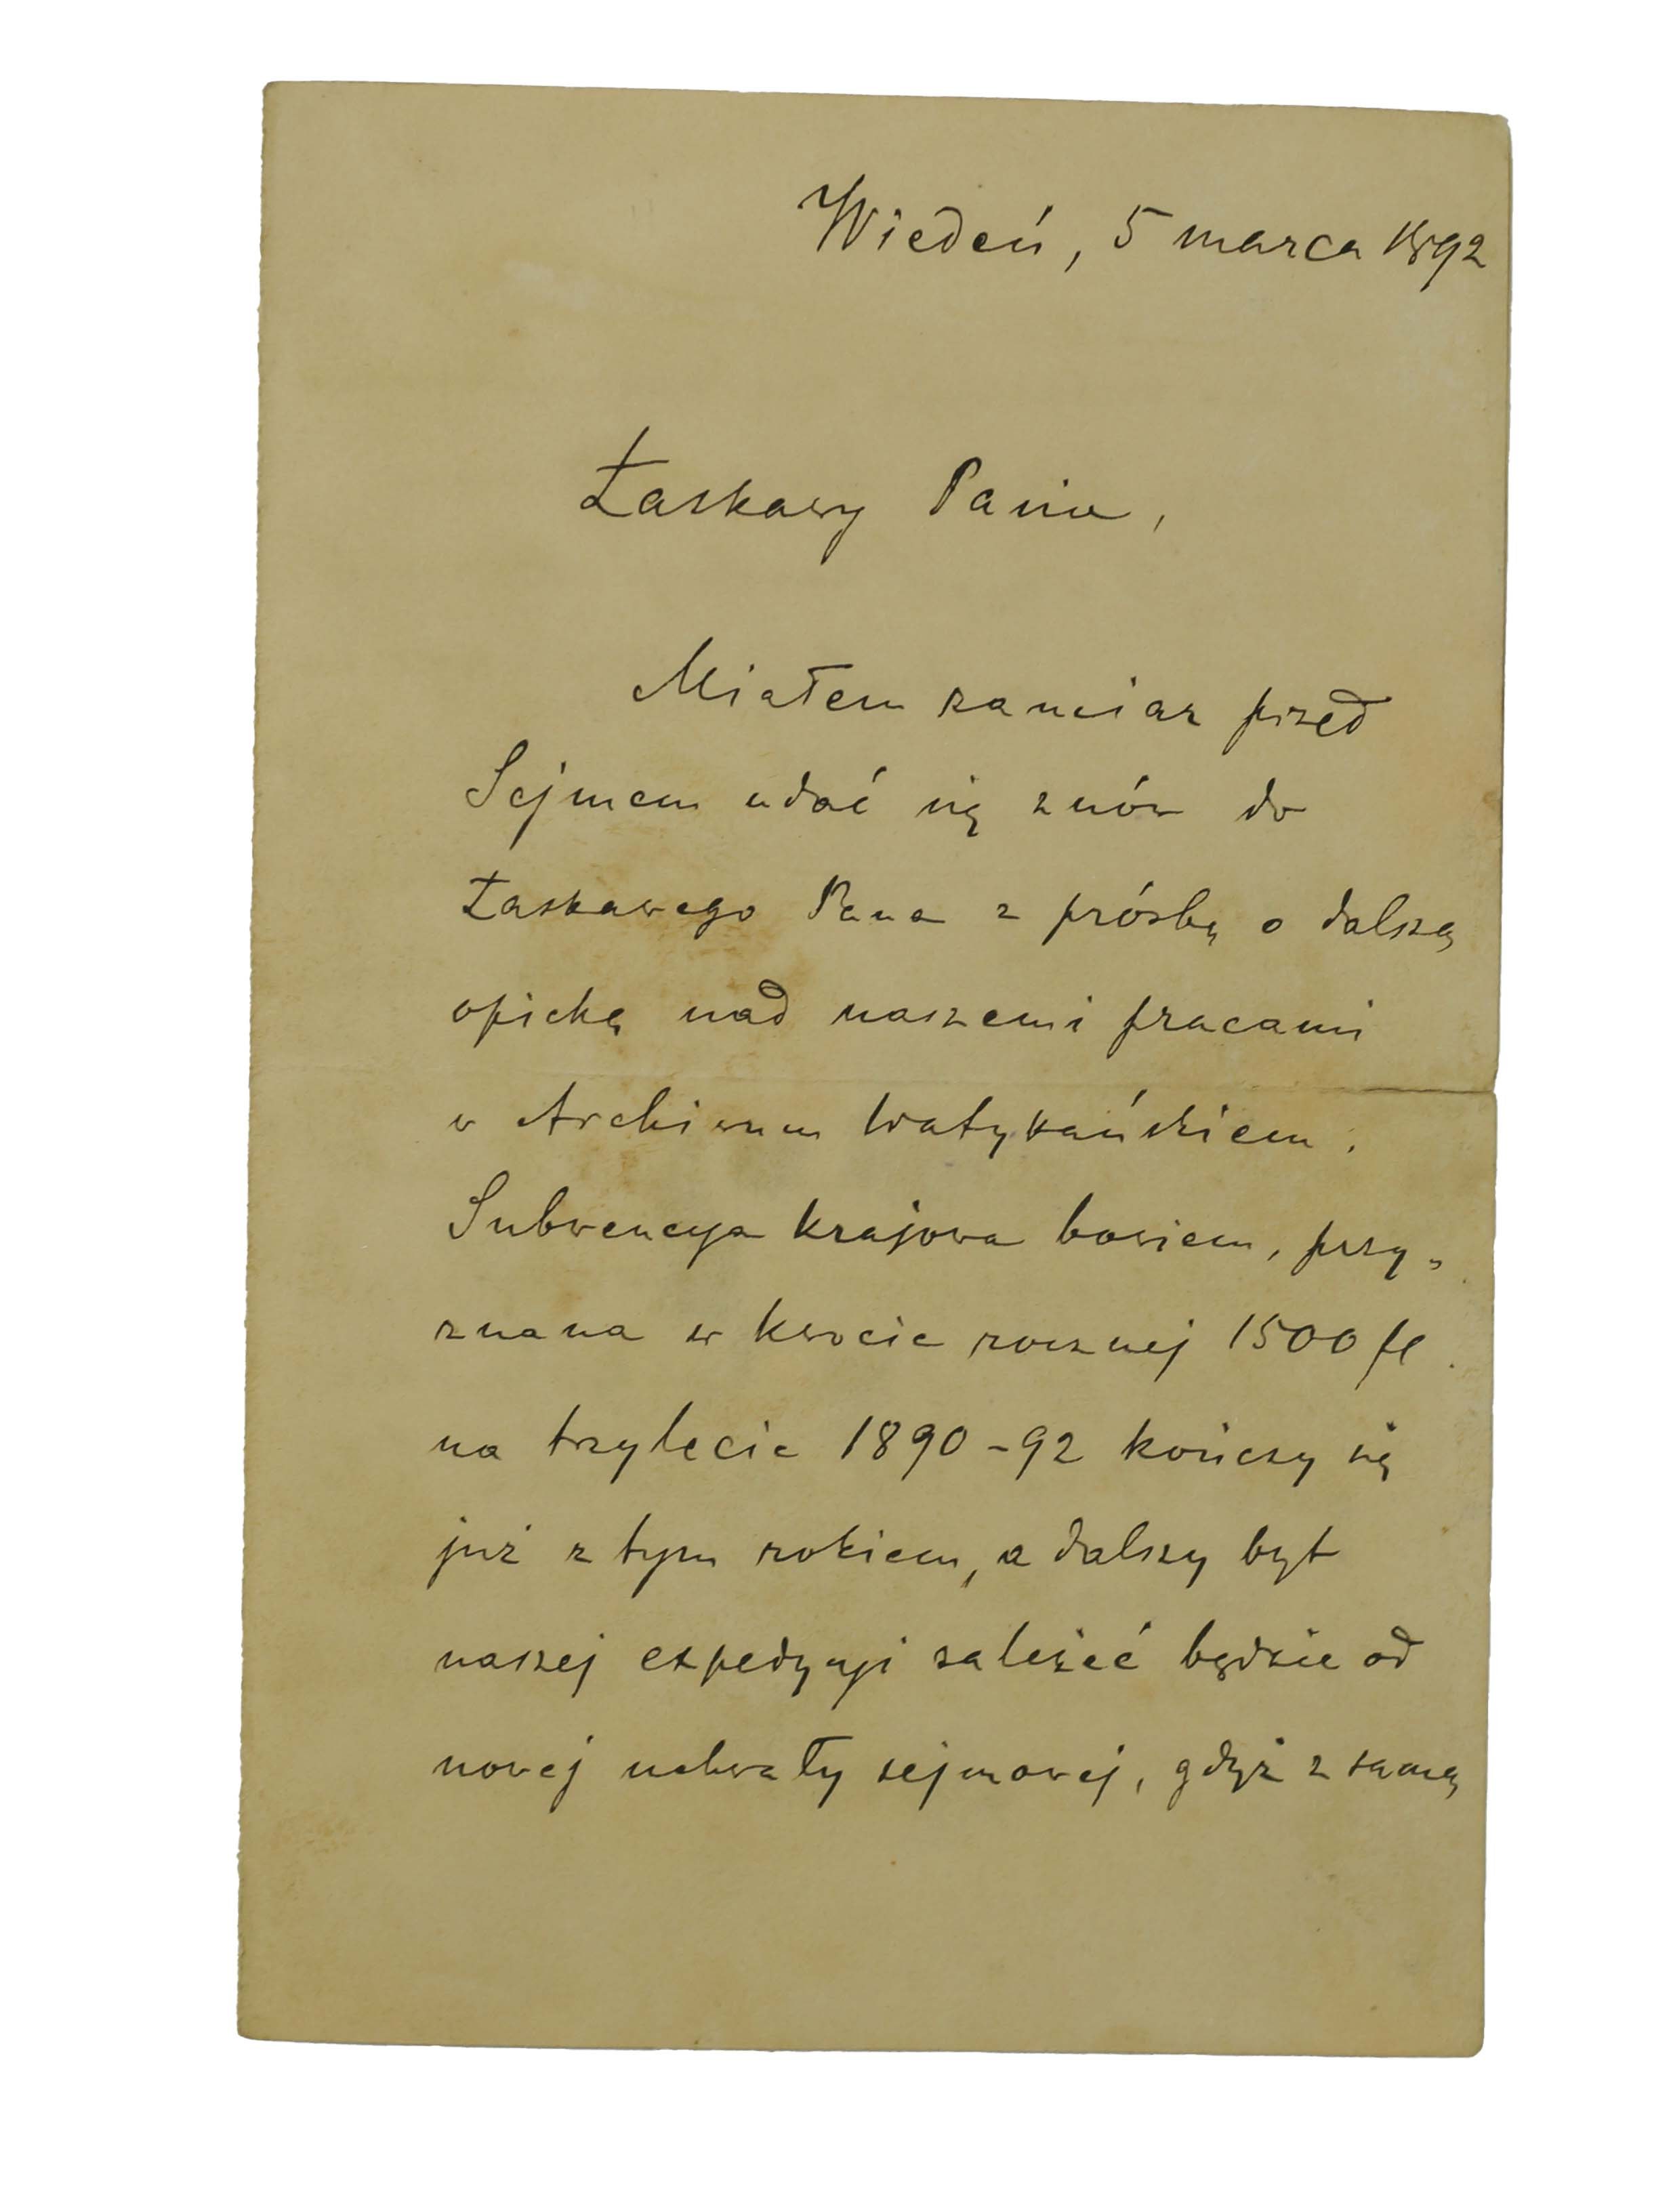 Wiedeń, 5 marca 1892
Łaskawy Panie,
Miałem zamiar przed
Sejmem udać się znów do
Łaskawego Pana z prośbą o dalszą
opiekę nad naszemi pracami
w Archiwum Watykańskiem.
Subwencya krajowa bowiem, przy„
znana w kwocie rocznej 1500 fl.
na trzylecie 1890-92 kończy się
już z tym rokiem, a dalszy byt
naszej expedycyi zależeć będzie od
nowej uchwały sejmowej, gdyż z samą